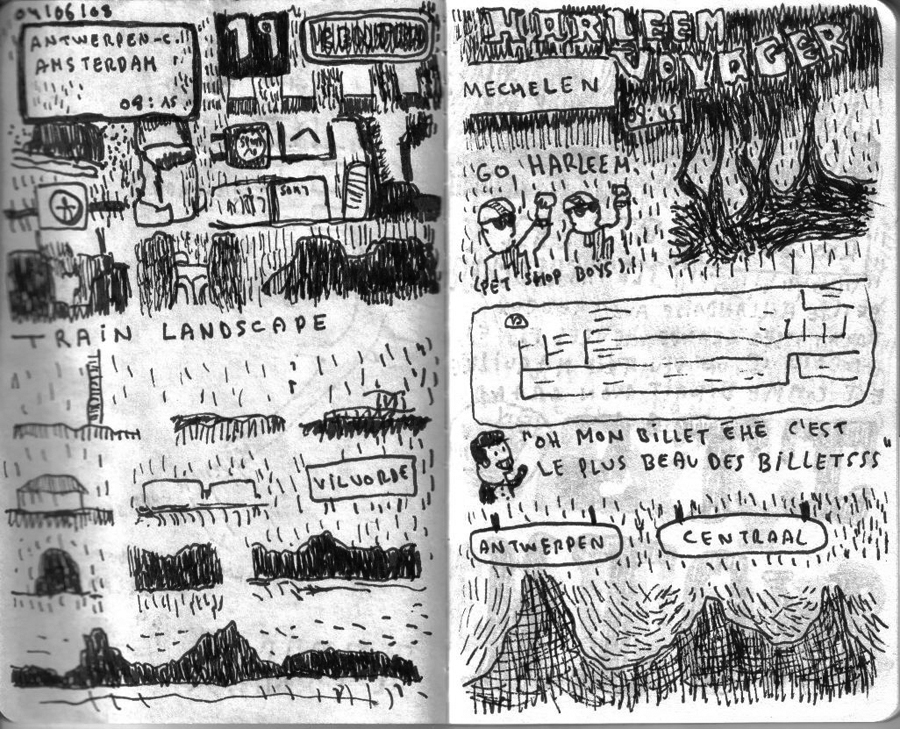 04/06/08
ANTWERPEN-C.
AMSTERDAM
09:15
19
SONY
TRAIN LANDSCAPE
VILVORDE
HARLEEM
VOYAGER
MECHELEN
09:45
GO, HARLEEM
(PET SHOP BOYS)!
"OH MON BILLET EHE C'EST
LE PLUS BEAU DES BILLETSSS"
ANTWERPEN
CENTRAAL